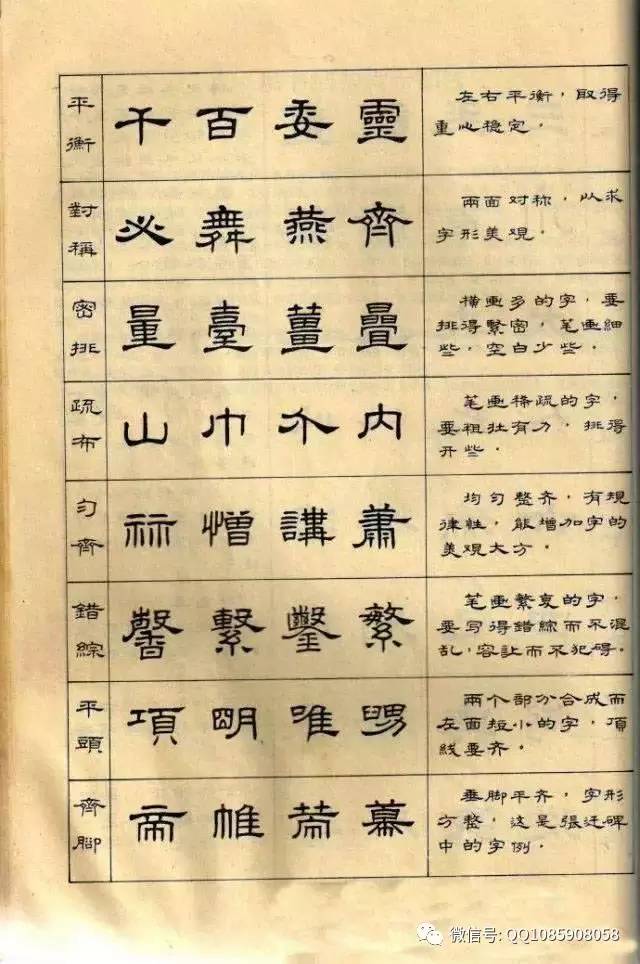 平衡
千 百 委 靈
左右平衡，取得
重心稳定。
對稱
必 舞 燕 齊
兩面对称，以求
字形美观。
密排
量 臺 薑 疊
横画多的字，要
排得紧密，笔画细
些，空白少些。
疏布
山 巾 介 内
笔画稀疏的字，
要粗壮有力，排得
开些。
匀齊
祘 憎 講 蕭
均匀整齐，有规
律性，能增加字的
美观大方。
錯綜
馨 繫 鑿 繁
笔画繁复的字，
要写得錯綜而不混
乱，容让而不犯碍。
平頭
項 明 唯
兩个部分合成而
左面短小的字，頂
线要齐。
齊腳
帝 帷 幕
垂脚平齐，字形
方整，这是張迁碑
中的字例。
微信号: QQ1085908058